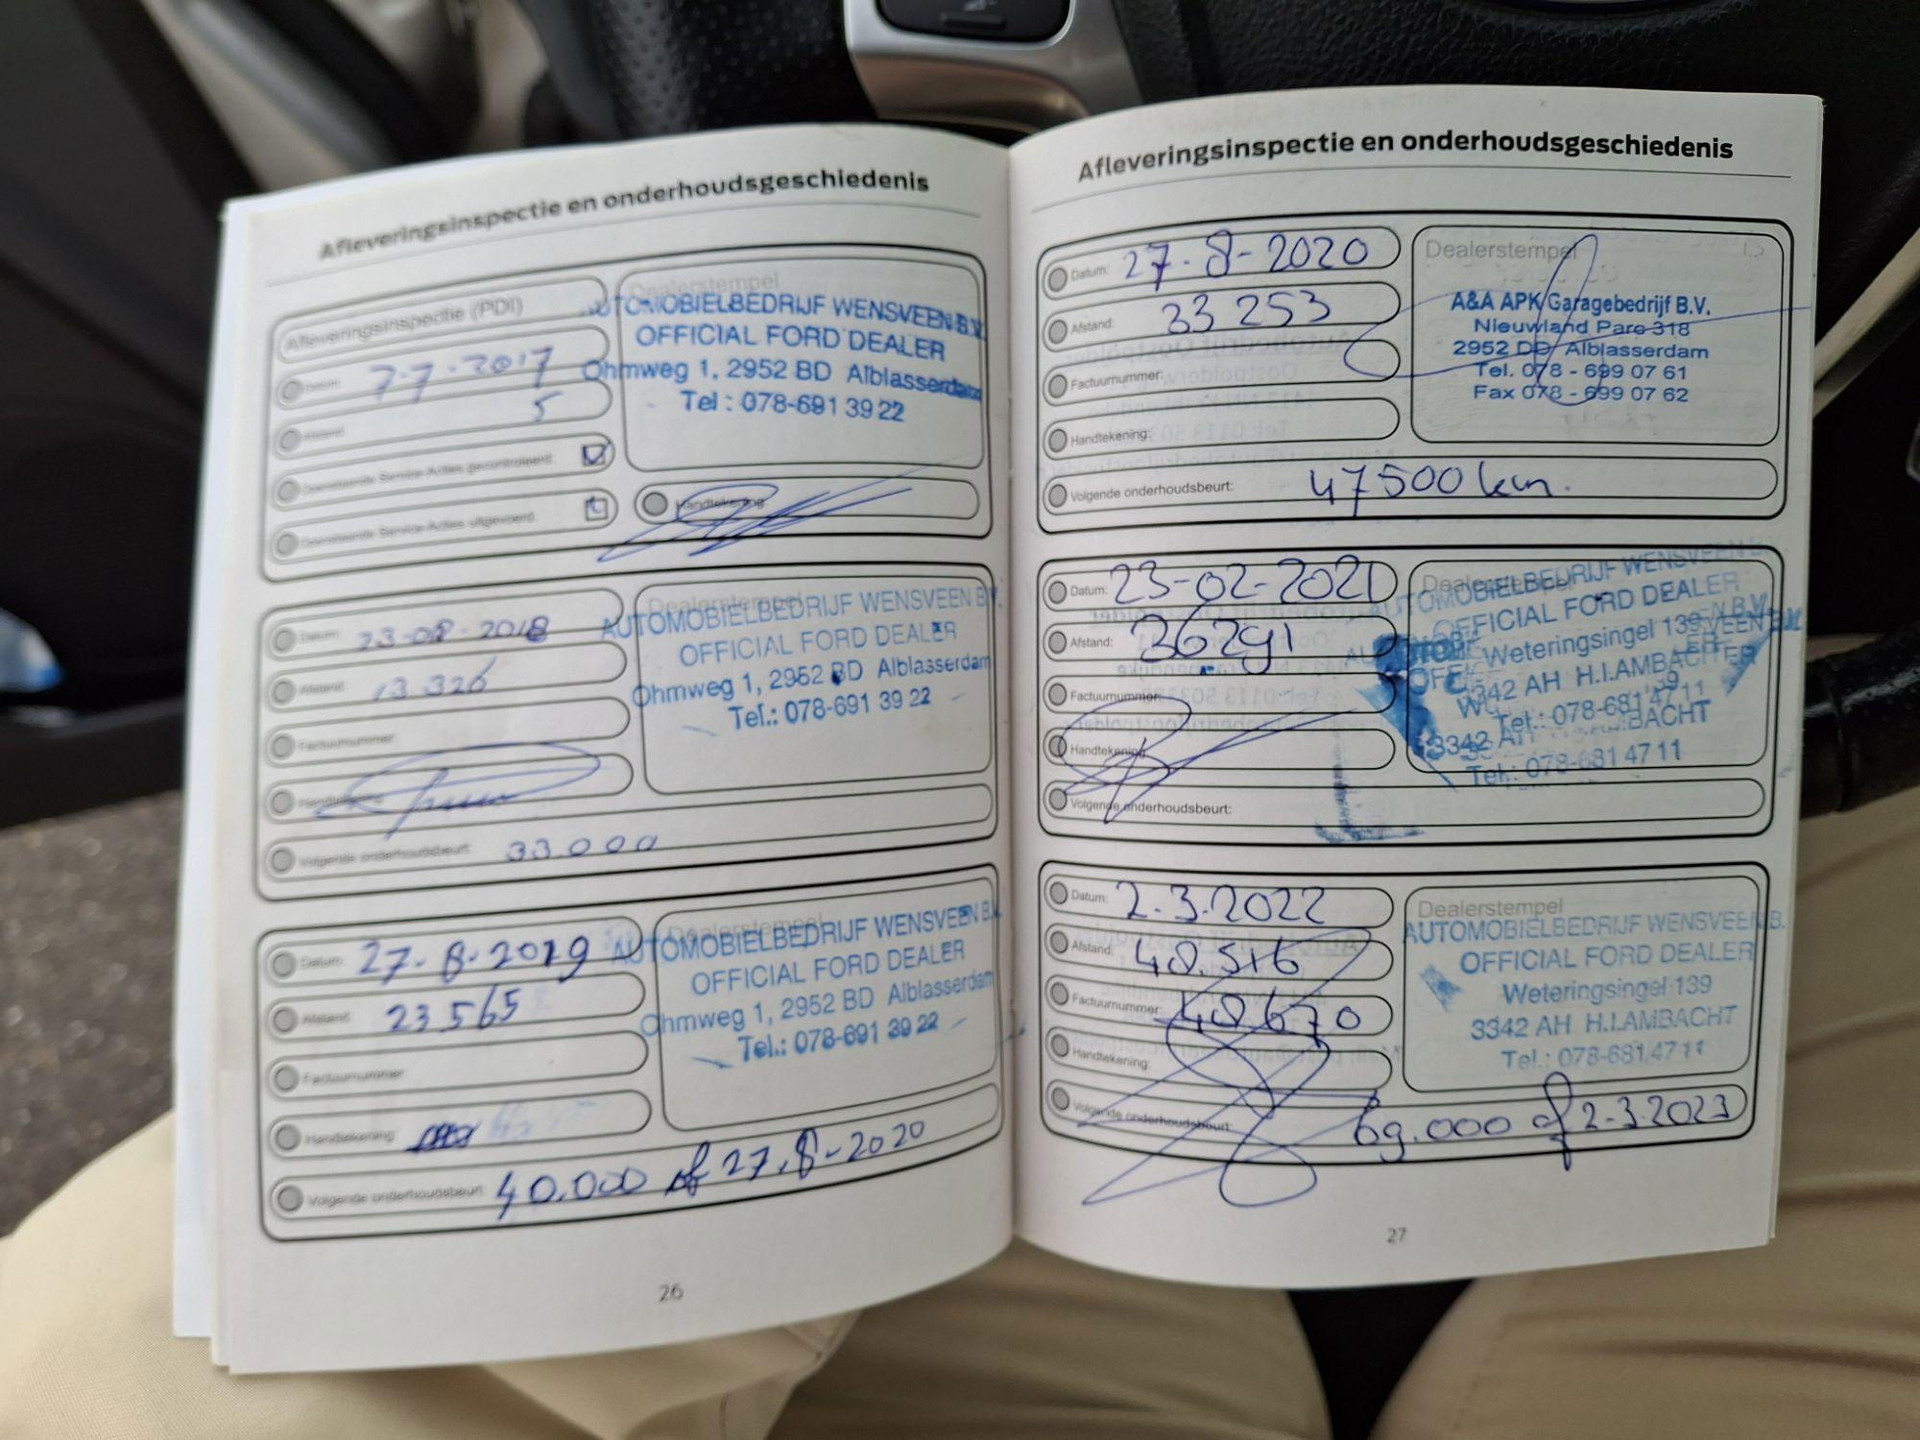 Afleveringsinspectie en onderhoudsgeschiedenis
Afleveringsinspectie (PDI)
Datum: 7-7-2017
Afstand: 5
Openstaande Service-Acties gecontroleerd:
Openstaande Service-Acties uitgevoerd:
Dealerstempel
AUTOMOBIELBEDRIJF WENSVEEN B.V.
OFFICIAL FORD DEALER
Ohmweg 1, 2952 BD Alblasserdam
Tel : 078-691 39 22
Handtekening:
Datum: 23-08-2018
Afstand: 13 326
Factuurnummer:
Handtekening:
Volgende onderhoudsbeurt: 33.000
Dealerstempel
AUTOMOBIELBEDRIJF WENSVEEN B.V.
OFFICIAL FORD DEALER
Ohmweg 1, 2952 BD Alblasserdam
Tel.: 078-691 39 22
Datum: 27-8-2019
Afstand: 23565
Factuurnummer:
Handtekening:
Volgende onderhoudsbeurt: 40.000 of 27-8-2020
Dealerstempel
AUTOMOBIELBEDRIJF WENSVEEN B.V.
OFFICIAL FORD DEALER
Ohmweg 1, 2952 BD Alblasserdam
Tel.: 078-691 39 22
26
Afleveringsinspectie en onderhoudsgeschiedenis
Datum: 27-8-2020
Afstand: 33 253
Factuurnummer:
Handtekening:
Volgende onderhoudsbeurt: 47500 km.
Dealerstempel
A&A APK Garagebedrijf B.V.
Nieuwland Parc 318
2952 DD Alblasserdam
Tel. 078 - 699 07 61
Fax 078 - 699 07 62
Datum: 23-02-2021
Afstand: 36291
Factuurnummer:
Handtekening:
Volgende onderhoudsbeurt:
Dealerstempel
AUTOMOBIELBEDRIJF WENSVEEN B.V.
OFFICIAL FORD DEALER
Weteringsingel 139
3342 AH H.I.AMBACHT
Tel.: 078-681 47 11
3342 AH AMBACHT
Tel.: 078-681 47 11
Datum: 2-3-2022
Afstand: 48.516
Factuurnummer: 48670
Handtekening:
Volgende onderhoudsbeurt: 69.000 of 2-3-2023
Dealerstempel
AUTOMOBIELBEDRIJF WENSVEEN B.
OFFICIAL FORD DEALER
Weteringsingel 139
3342 AH H.I.AMBACHT
Tel.: 078-681 47 11
27